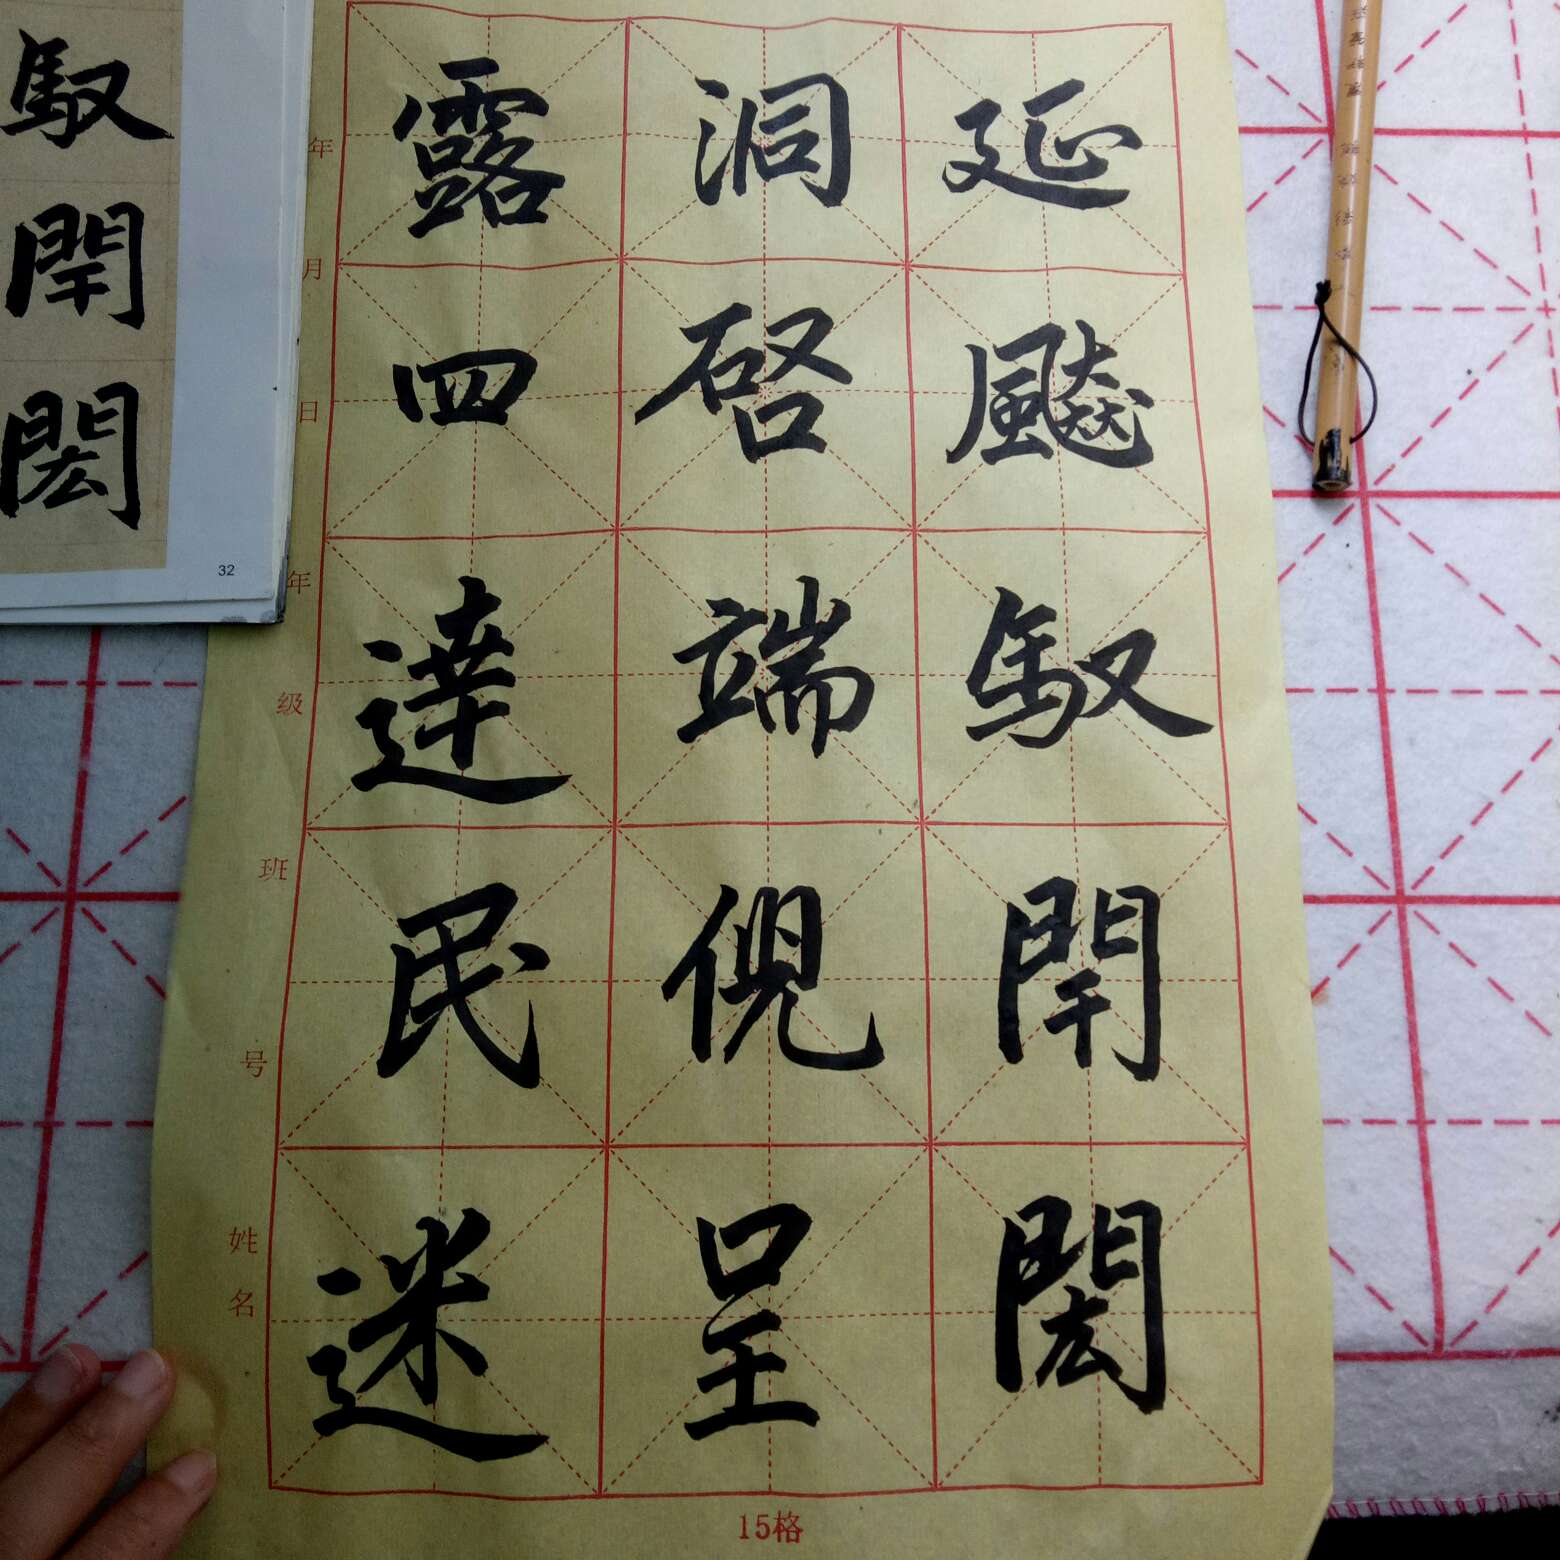 延飈馭閈閎
洞啓端倪呈
露四達民迷
馭閈閎
32
年 月 日
年级 班 号
姓名
15格